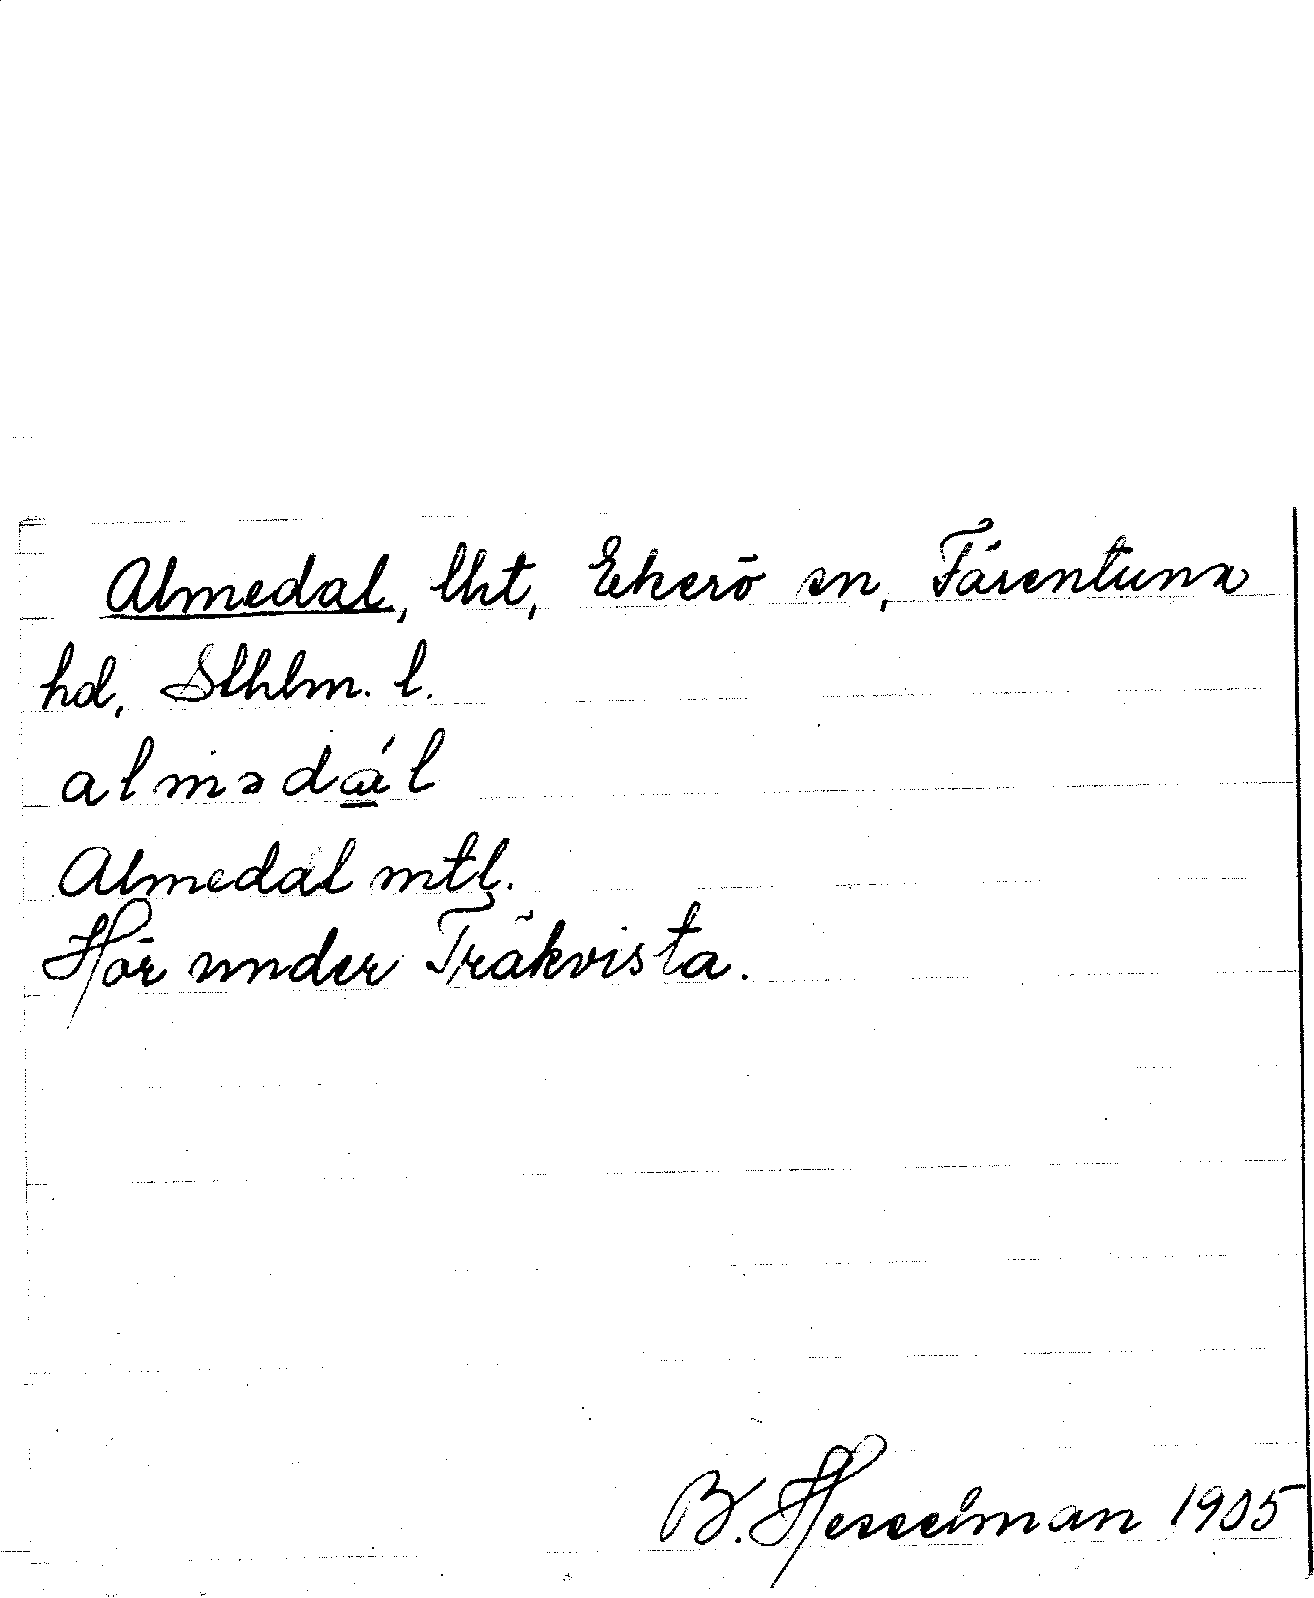 Almedal, lht, Ekerö sn, Färentuna
hd, Sthlm. l.
almədá̲l
Almedal mtl.
Hör under Träkvista.
B. Hesselman 1905